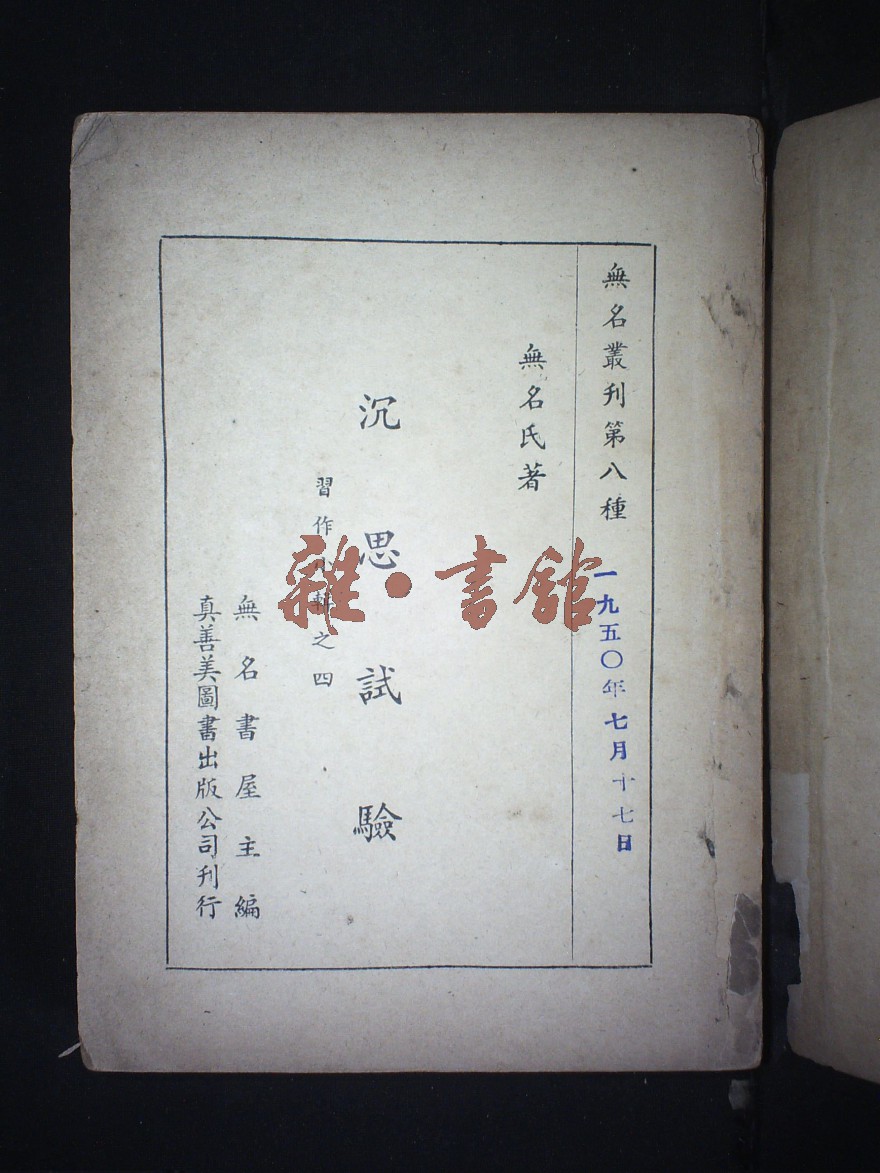 無名叢刊第八種
一九五〇年七月十七日
無名氏著
沉思試驗
習作八輯之四
無名書屋主編
真善美圖書出版公司刊行
雜·書館